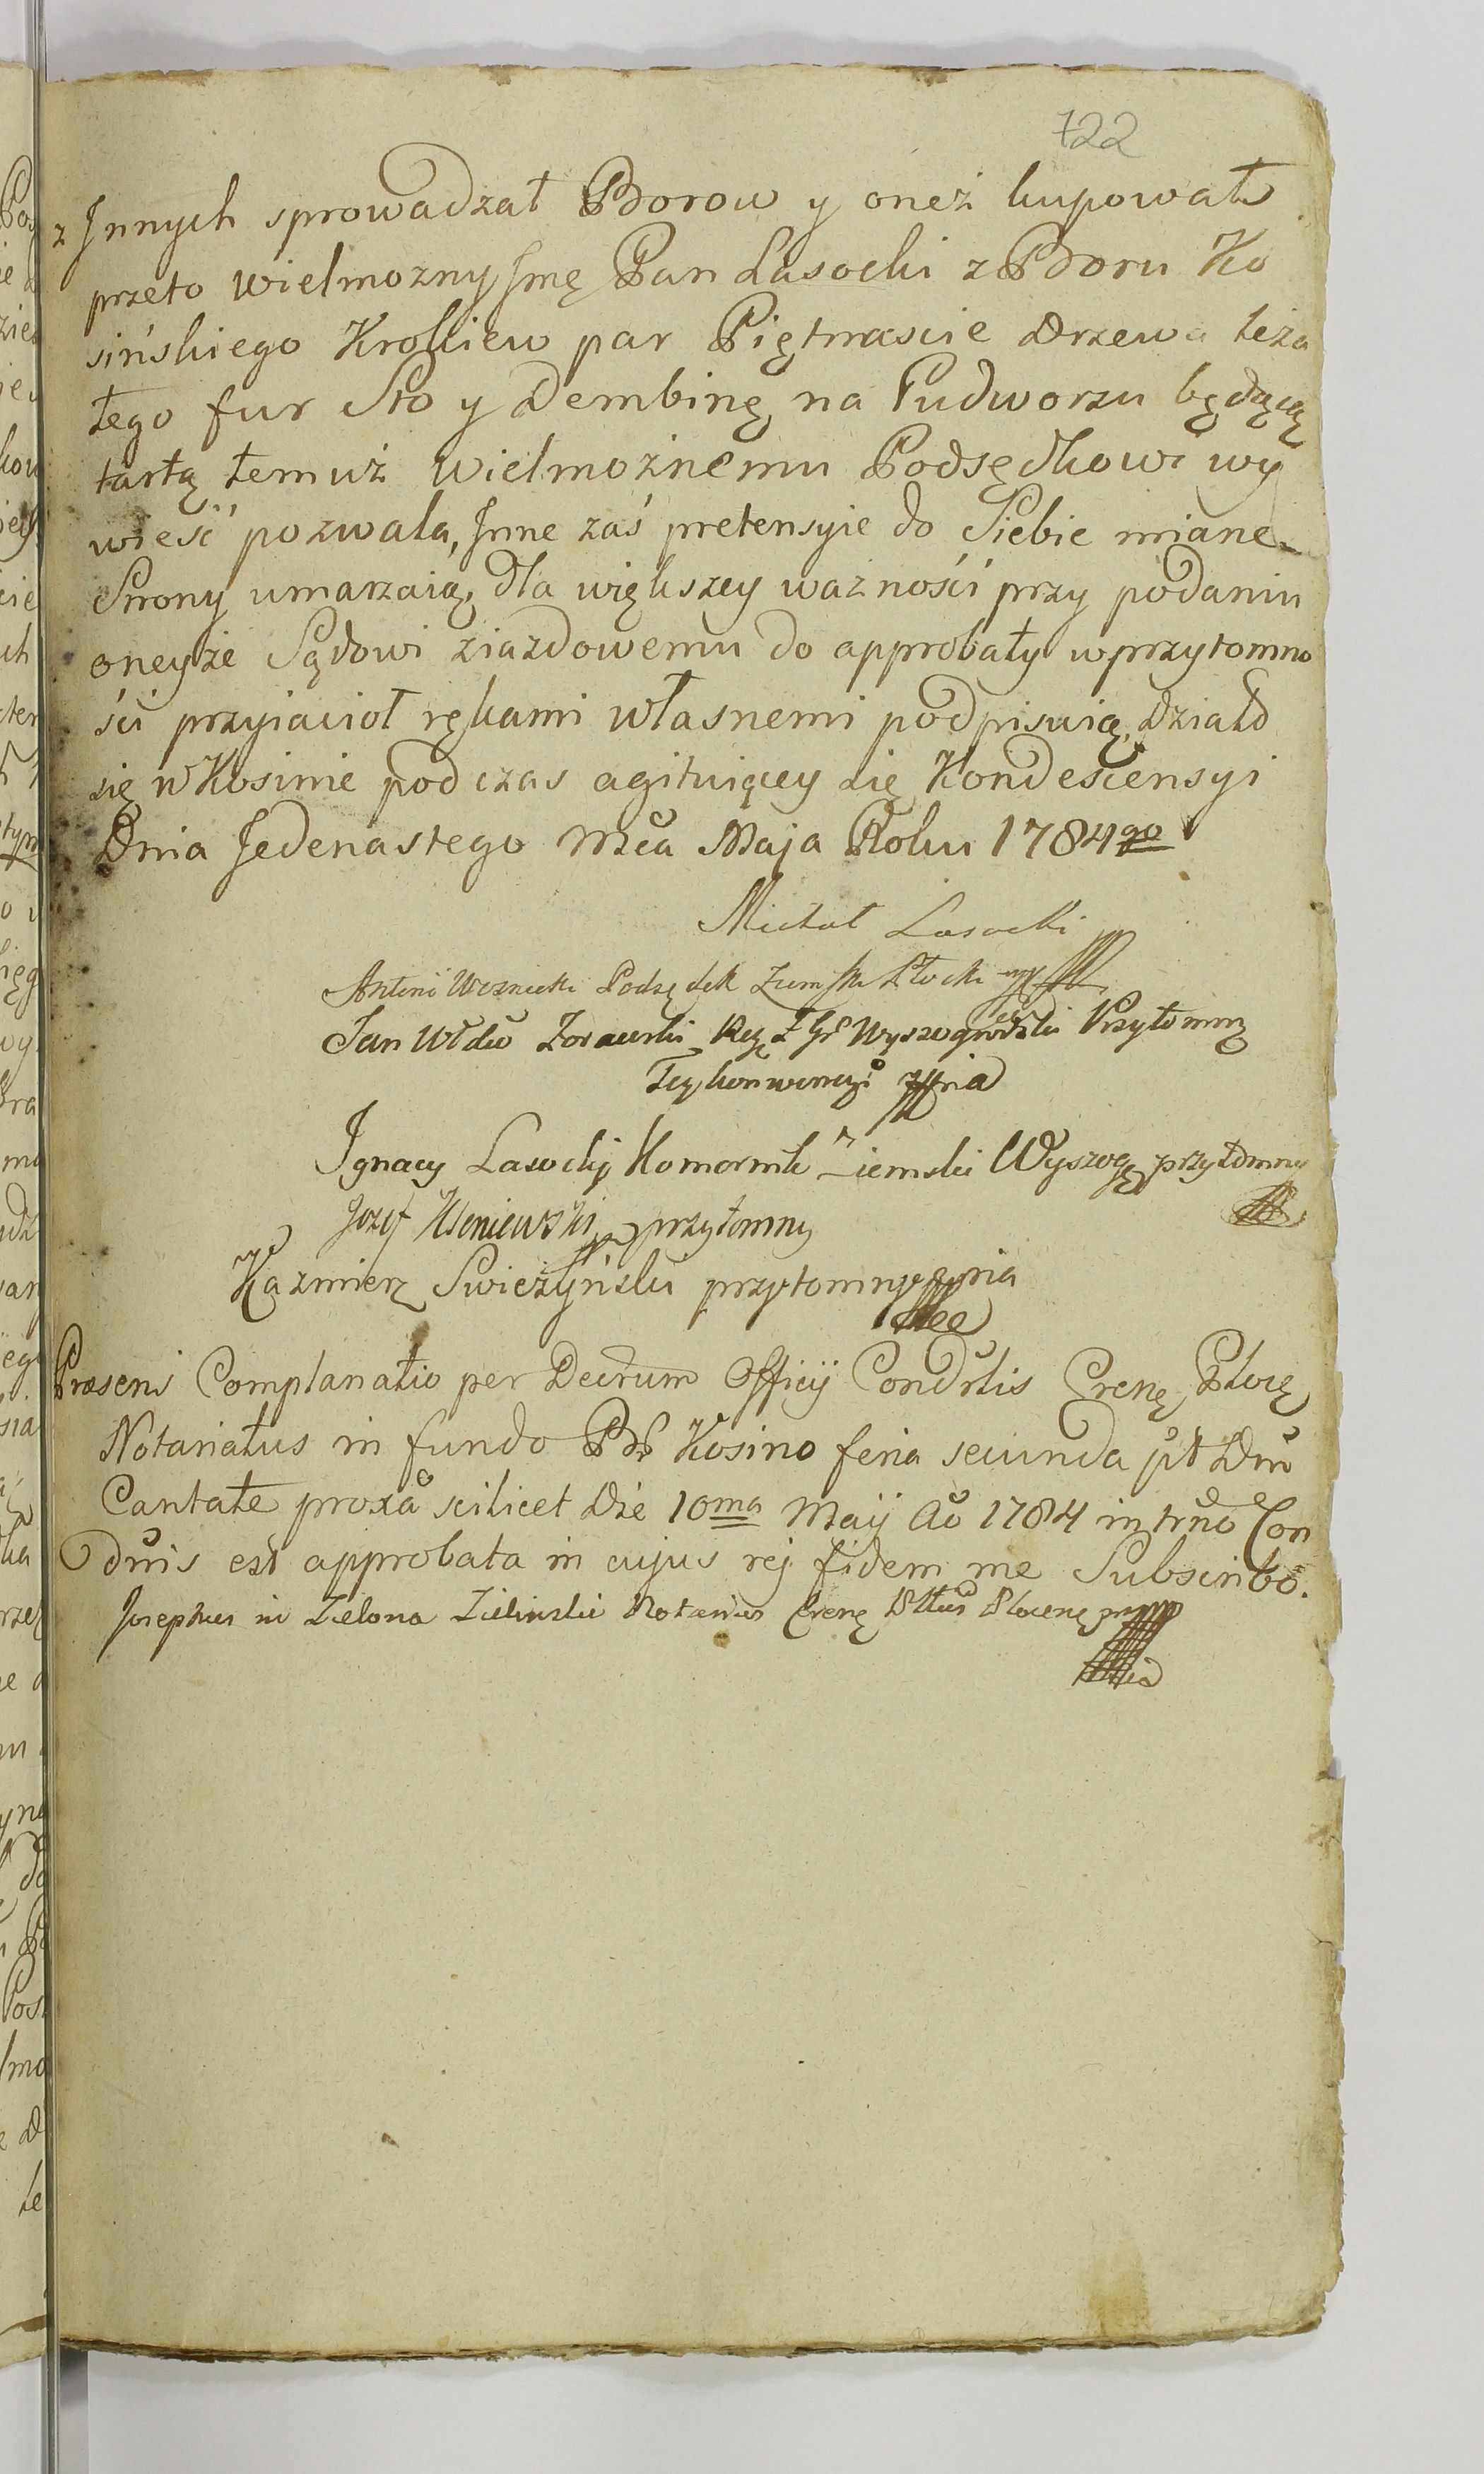 722
z Innych sprowadzał Borow y oneż kupował
przeto wielmozny Jmę Pan Lasocki z Boru Ko
sińskiego Krokiew par Piętnascie Drzewa leża
łego fur Sto y Dembinę na Pudworzu będącą
tartą temuż wielmożnemu Podsędkowi wy
wieść pozwala, Inne zaś pretensyie do Siebie miane
Strony umarzaią, dla większey ważności przy podaniu
oneyże Sądowi ziazdowemu do approbaty w przytomno
ści przyiacioł rękami własnemi podpisuią, działo
się w Kosinie podczas agituiącey się Kondescensyi
Dnia Jedenastego Mca Maja Roku 1784go
Michał Lasocki
Antoni Woznicki Podsędek Ziemski Płocki
Jan Zorawski Wyszogrodzki Przytomny
Tey
Ignacy Lasocky Komornik Ziemski Wyszog przytomny
Jozef przytomny
Kazmierz Swieżyński przytomny
Præsens Complanatio per Decrum Officij Condrlis Crenę Plocę
Notariatus in fundo Bw Kosino feria secunda pt Dm
Cantate proxa scilicet Die 10ma Maij Ao 1784 in trno Con
dnis est approbata in cujus rej fidem me Subscribo.
Josephus in Zielona Zielinski Notarius Crenę Plocenę